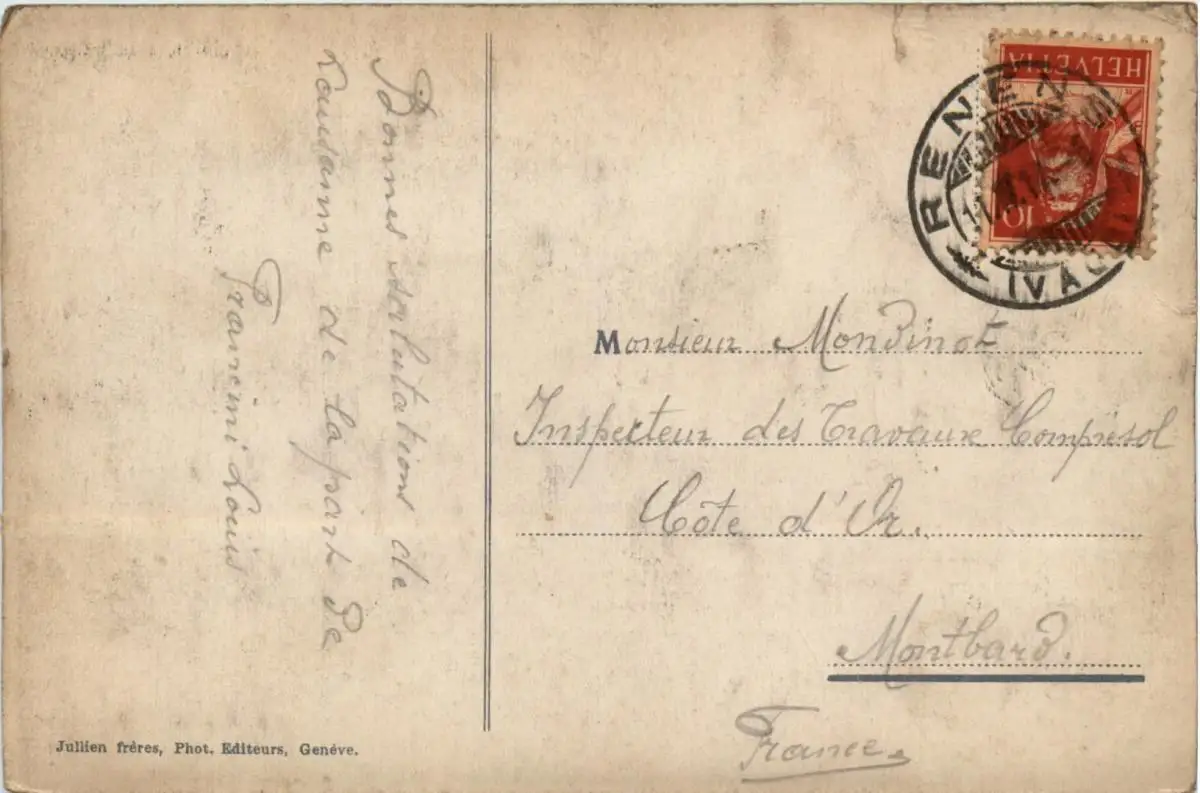 Bonnes salutations de
Lausanne de la part de
Louis
HELVETIA
10
RENENS
(VAUD)
Monsieur Mondinot
Inspecteur des Travaux Compresol
Côte d'Or.
Montbard.
France.
Jullien frères, Phot. Editeurs, Genéve.